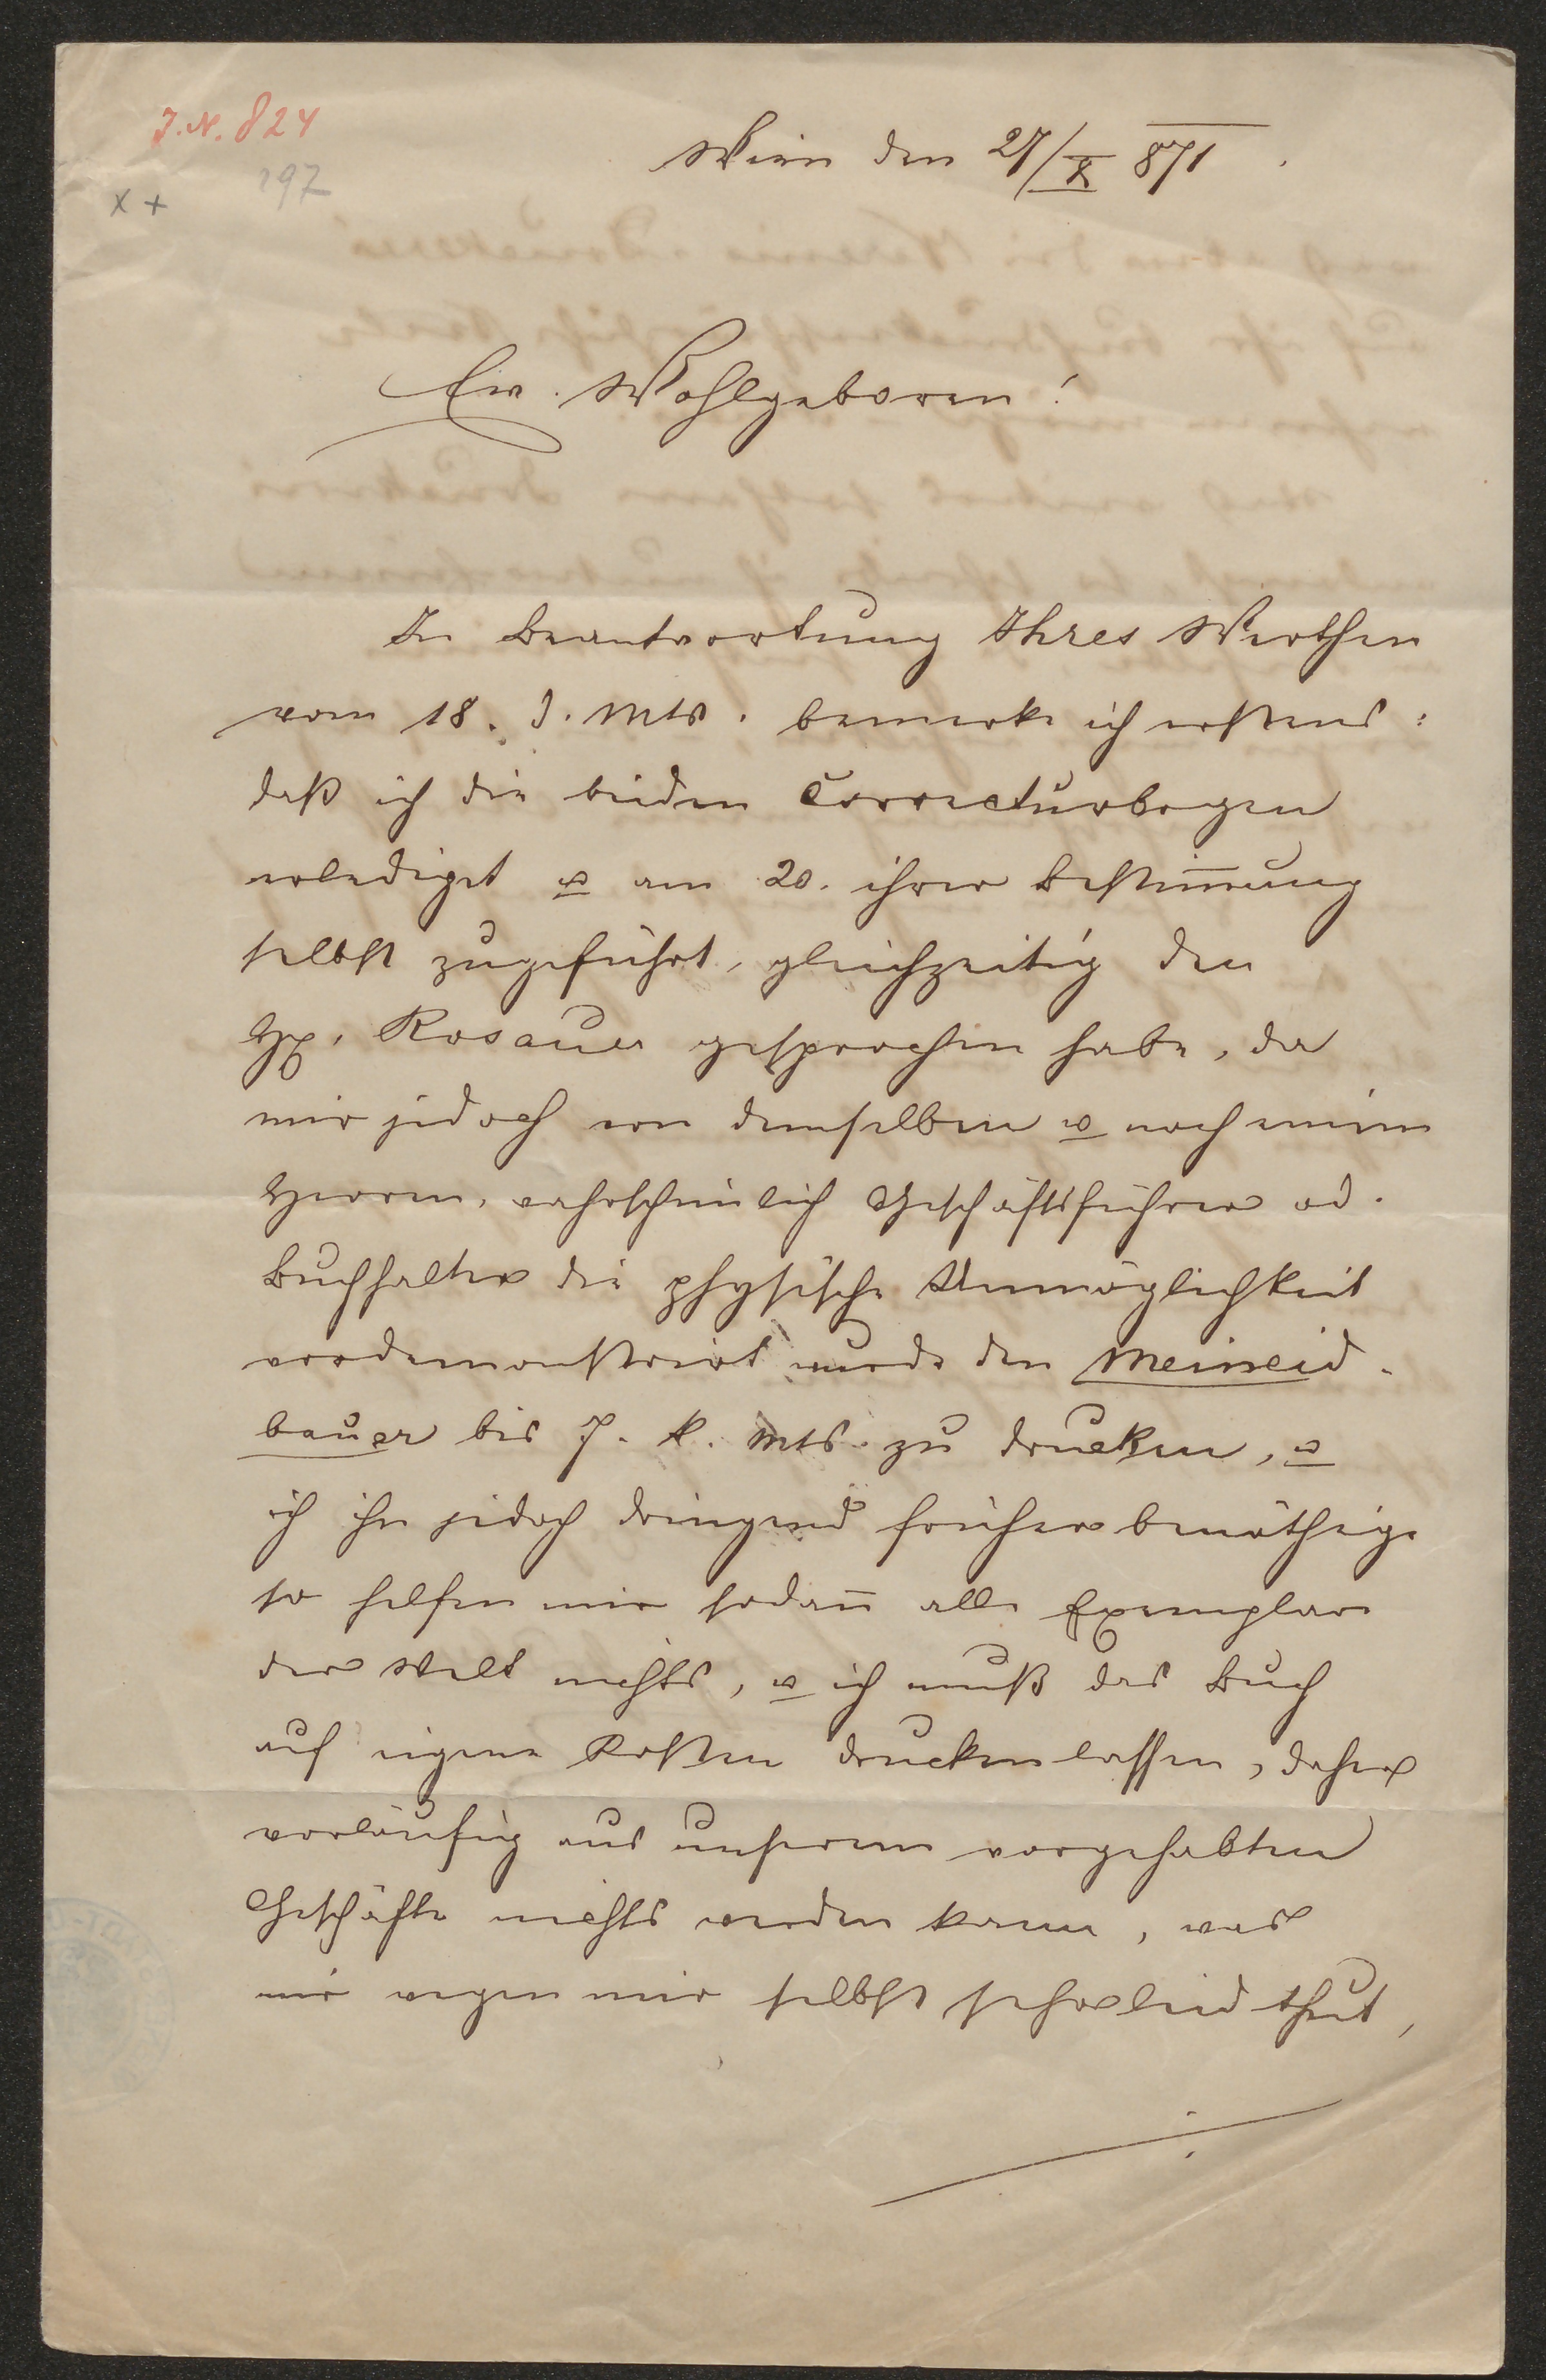 J. N. 824
197
x +
Wien den 27/X 871.
Ew. Wohlgeboren!
In Beantwortung Ihres Werthen
vom 18. d. Mts. bemerke ich erstens:
daß ich die beiden Correcturbogen
erlediget u am 20. ihrer Bestim̄ung
selbst zugeführt, gleichzeitig den
H. Rosauer gesprochen habe, da
mir jedoch von demselben u noch einem
Herren, wahrscheinlich Geschäftsführer od.
Buchhalter die physische Unmöglichkeit
vordemonstrirt wurde den Meineid-
bauer bis 7. k. Mts. zu drucken, u
ich ihn jedoch dringend früher benöthige
so helfen mir sodan̄ alle Exemplare
der Welt nichts, u ich muß das Buch
auf eigene Kosten drucken lassen, daher
vorläufig aus unserem vorgehabten
Geschäfte nichts werden kann, was
mir wegen mir selbst sehr leid thut,